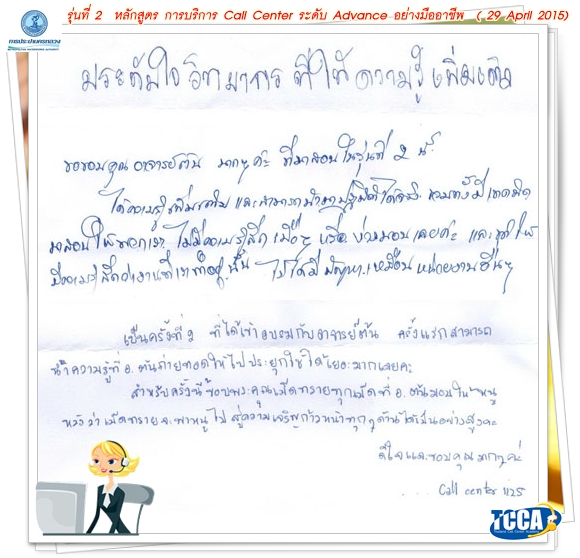 รุ่นที่ 2 หลักสูตร การบริการ Call Center ระดับ Advance อย่างมืออาชีพ ( 29 April 2015)
การประปานครหลวง
ประทับใจวิทยากร ที่ให้ความรู้เพิ่มเติม
ขอขอบคุณ อาจารย์ต้น มากๆค่ะ ที่มาสอนในรุ่นที่ 2 นี้
ได้ความรู้เพิ่มเติม และสามารถนำมาปฏิบัติได้จริง
มาสอนให้พวกเรา ไม่มีความรู้สึก เบื่อๆ หรือ ง่วงนอนเลยค่ะ และ ทำให้
มีความรู้สึกว่างานที่เราทำอยู่นั้น ไม่ได้มีปัญหา เหมือนหน่วยงานอื่นๆ
เป็นครั้งที่ 2 ที่ได้เข้าอบรมกับอาจารย์ต้น ครั้งแรกสามารถ
นำความรู้ที่ อ.ต้นถ่ายทอดให้ไปประยุกใช้ได้เยอะมากเลยค่ะ
สำหรับครั้งนี้ขอบพระคุณเม็ดทรายทุกเม็ดที่ อ.ต้นมอบให้หนู
หวังว่าเม็ดทรายจะพาหนูไปสู่ความเจริญก้าวหน้าทุกๆด้านได้เป็นอย่างสูงค่ะ
ดีใจและขอบคุณมากๆค่ะ
Call center 1125
TCCA